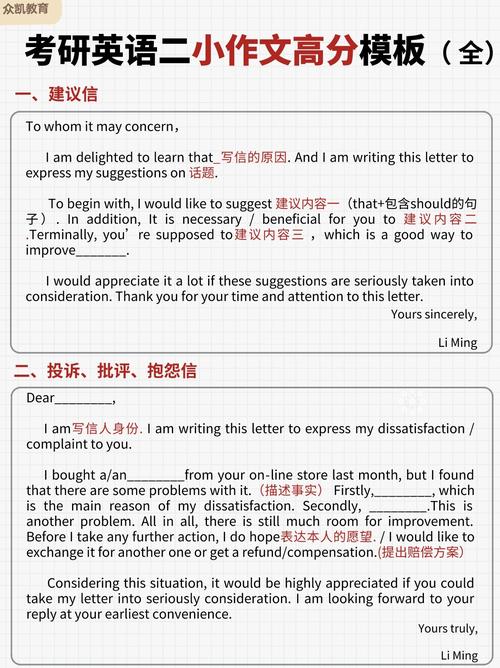 众凯教育
考研英语二小作文高分模板（全）
一、建议信
To whom it may concern，
I am delighted to learn that_写信的原因. And I am writing this letter to
express my suggestions on 话题.
To begin with, I would like to suggest 建议内容一（that+包含should的句
子）. In addition, It is necessary / beneficial for you to 建议内容二
.Terminally, you’re supposed to建议内容三 ，which is a good way to
improve_______.
I would appreciate it a lot if these suggestions are seriously taken into
consideration. Thank you for your time and attention to this letter.
Yours sincerely,
Li Ming
二、投诉、批评、抱怨信
Dear________,
I am写信人身份. I am writing this letter to express my dissatisfaction /
complaint to you.
I bought a/an________from your on-line store last month, but I found
that there are some problems with it.（描述事实） Firstly,________, which
is the main reason of my dissatisfaction. Secondly, ________.This is
another problem. All in all, there is still much room for improvement.
Before I take any further action, I do hope表达本人的愿望. / I would like to
exchange it for another one or get a refund/compensation.(提出赔偿方案）
Considering this situation, it would be highly appreciated if you could
take my letter into seriously consideration. I am looking forward to your
reply at your earliest convenience.
Yours truly,
Li Ming